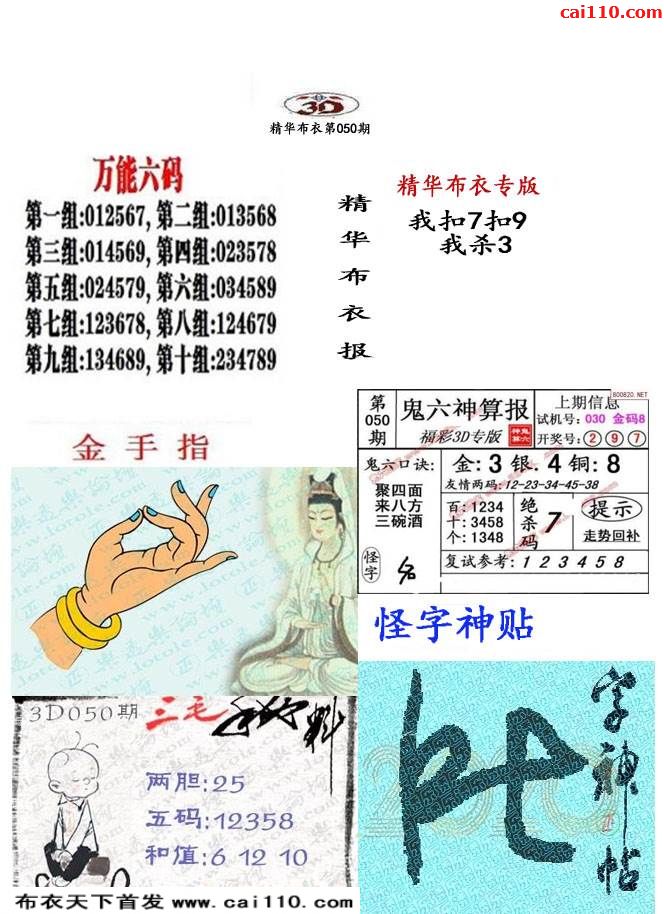 cai110.com
3D
精华布衣第050期
万能六码
第一组:012567, 第二组:013568
第三组:014569, 第四组:023578
第五组:024579, 第六组:034589
第七组:123678, 第八组:124679
第九组:134689, 第十组:234789
精华布衣报
精华布衣专版
我扣7扣9
我杀3
金手指
第050期
鬼六神算报
福彩3D专版
上期信息
800820.NET
试机号: 030 金码8
开奖号: 2 9 7
鬼六口诀:
聚四面
来八方
三碗酒
金: 3 银. 4 铜: 8
友情两码: 12-23-34-45-38
百: 1234
十: 3458
个: 1348
绝杀码 7
提示
走势回补
怪字
复试参考: 1 2 3 4 5 8
怪字神贴
字神帖
3D050期
三毛
两胆:25
五码:12358
和值:6 12 10
布衣天下首发 www.cai110.com